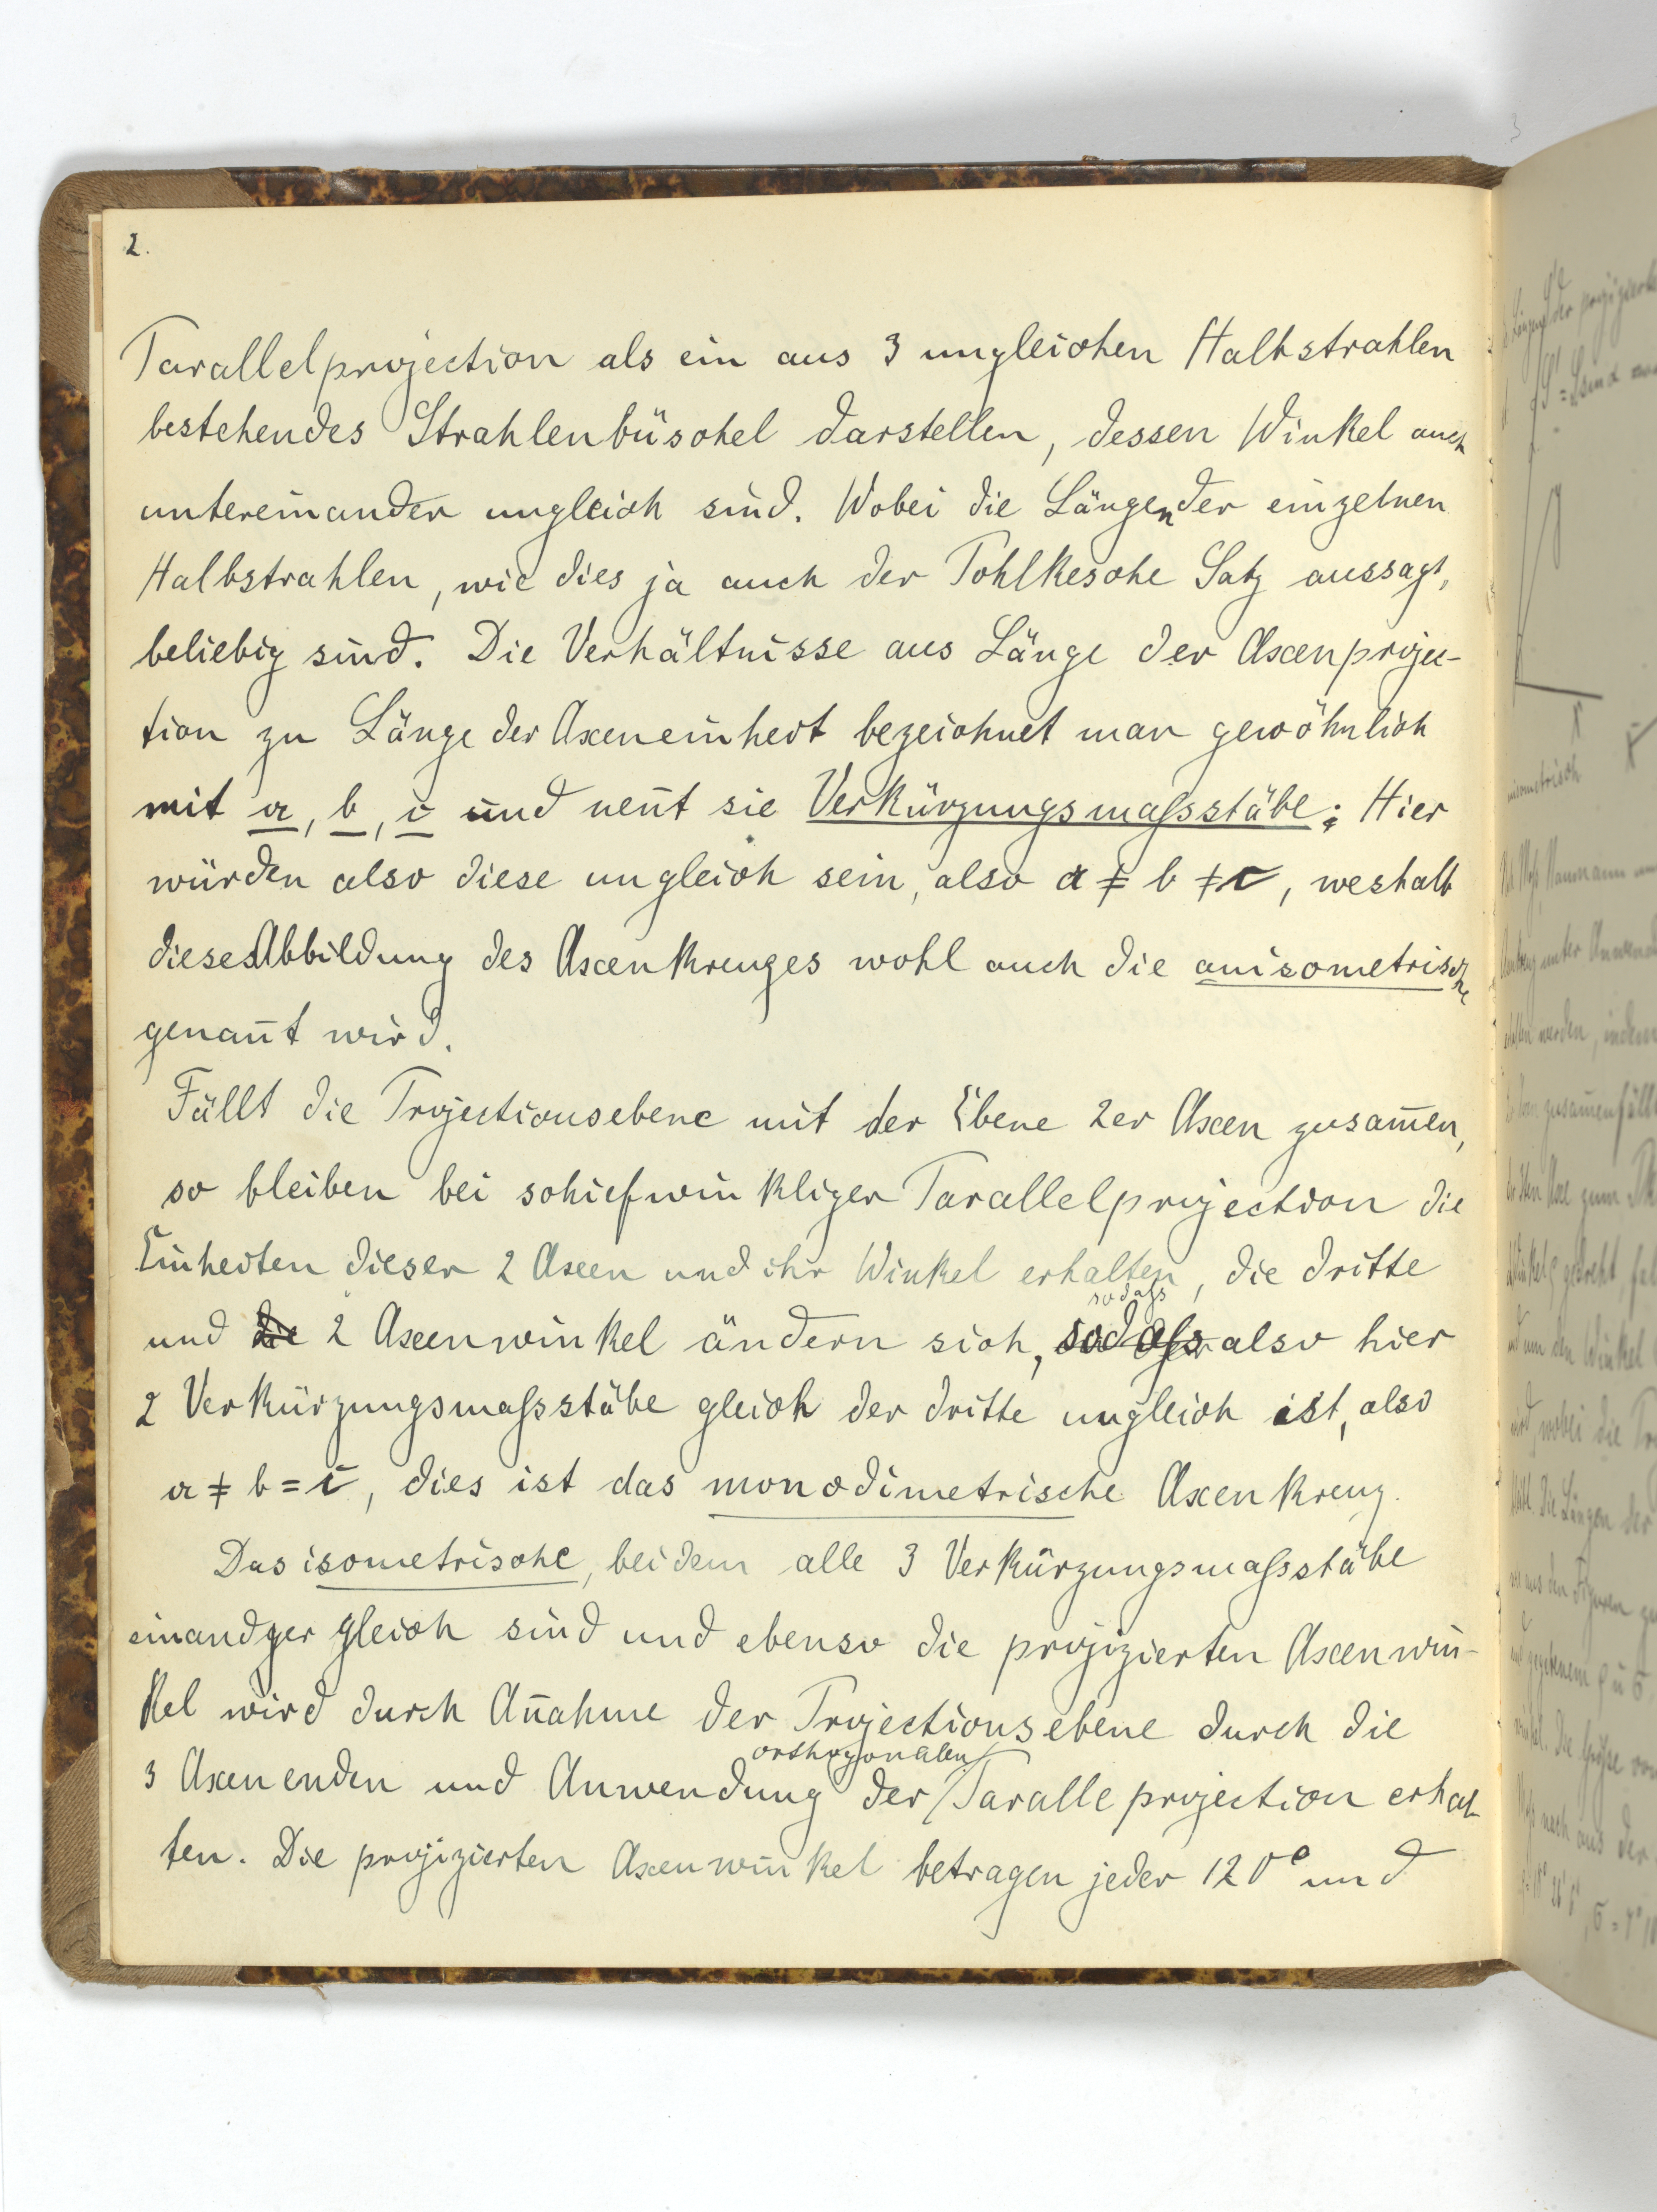 2.
Parallelprojection als ein aus 3 ungleichen Halbstrahlen
bestehendes Strahlenbüschel darstellen, dessen Winkel auch
untereinander ungleich sind. Wobei die Längen der einzelnen
Halbstrahlen, wie dies ja auch der Pohlkesche Satz aussagt,
beliebig sind. Die Verhältnisse aus Länge der Axenprojec-
tion zu Länge der Axeneinheit bezeichnet man gewöhnlich
mit a, b, c und nen̄t sie Verkürzungsmaſsstäbe; Hier
würden also diese ungleich sein, also a ≠ b ≠ c, weshalb
diese Abbildung des Axenkreuzes wohl auch die anisometrische
genan̄t wird.
Fällt die Projectionsebene mit der Ebene 2er Axen zusam̄en,
so bleiben bei schiefwinkliger Parallelprojection die
Einheiten dieser 2 Axen und ihr Winkel erhalten, die dritte
sodaſs
und die 2 Axenwinkel ändern sich, sodaſs also hier
2 Verkürzungsmaſsstäbe gleich der dritte ungleich ist, also
a ≠ b = c, dies ist das monodimetrische Axenkreuz.
Das isometrische, bei dem alle 3 Verkürzungsmaſsstäbe
einander gleich sind und ebenso die projizierten Axenwin-
kel wird durch An̄ahme der Projectionsebene durch die
orthogonalen
3 Axenenden und Anwendung der Paralleprojection erhal-
ten. Die projizierten Axenwinkel betragen jeder 120° und